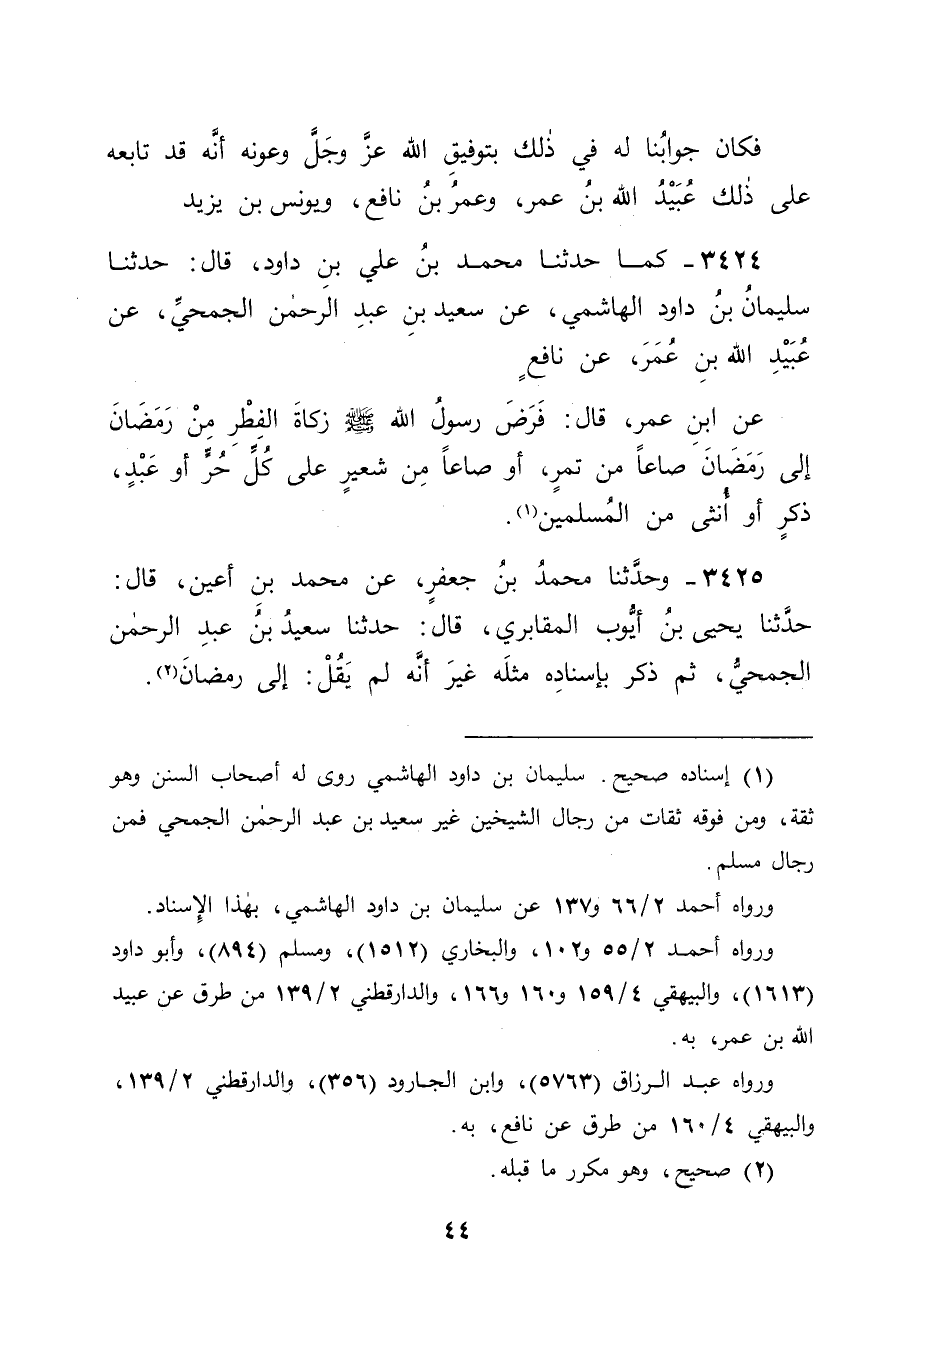 فكان جوابُنا له في ذٰلك بتوفيقِ الله عزَّ وجَلَّ وعونه أنَّه قد تابعه
على ذٰلك عُبَيْدُ الله بنُ عمر، وعمرُ بنُ نافع، ويونس بن يزيد
٣٤٢٤ - كمـا حدثنـا محمـد بنُ علي بنِ داود، قال: حدثنـا
سليمانُ بنُ داود الهاشمي، عن سعيد بنِ عبدِ الرحمٰن الجمحيِّ، عن
عُبَيْدِ الله بنِ عُمَرَ، عن نافعٍ
عن ابنِ عمر، قال: فَرَضَ رسولُ الله ﷺ زكاةَ الفِطْرِ مِنْ رَمَضَانَ
إلى رَمَضَانَ صاعاً من تمرٍ، أو صاعاً مِن شعيرٍ على كُلِّ حُرٍّ أو عَبْدٍ،
ذكرٍ أو أُنثى من المُسلمين(١).
٣٤٢٥ - وحدَّثنا محمدُ بنُ جعفرٍ، عن محمد بن أعين، قال:
حدَّثنا يحيى بنُ أيُّوب المقابري، قال: حدثنا سعيدُ بنُ عبدِ الرحمٰن
الجمحيُّ، ثم ذكر بإسنادِه مثلَه غيرَ أنَّه لم يَقُلْ: إلى رمضانَ(٢).
(١) إسناده صحيح. سليمان بن داود الهاشمي روى له أصحاب السنن وهو
ثقة، ومن فوقه ثقات من رجال الشيخين غير سعيد بن عبد الرحمٰن الجمحي فمن
رجال مسلم.
ورواه أحمد ٦٦/٢ و١٣٧ عن سليمان بن داود الهاشمي، بهٰذا الإِسناد.
ورواه أحمـد ٥٥/٢ و١٠٢، والبخاري (١٥١٢)، ومسلم (٨٩٤)، وأبو داود
(١٦١٣)، والبيهقي ١٥٩/٤ و١٦٠ و١٦٦، والدارقطني ١٣٩/٢ من طرق عن عبيد
الله بن عمر، به.
ورواه عبـد الـرزاق (٥٧٦٣)، وابن الجـارود (٣٥٦)، والدارقطني ١٣٩/٢،
والبيهقي ١٦٠/٤ من طرق عن نافع، به.
(٢) صحيح، وهو مكرر ما قبله.
٤٤